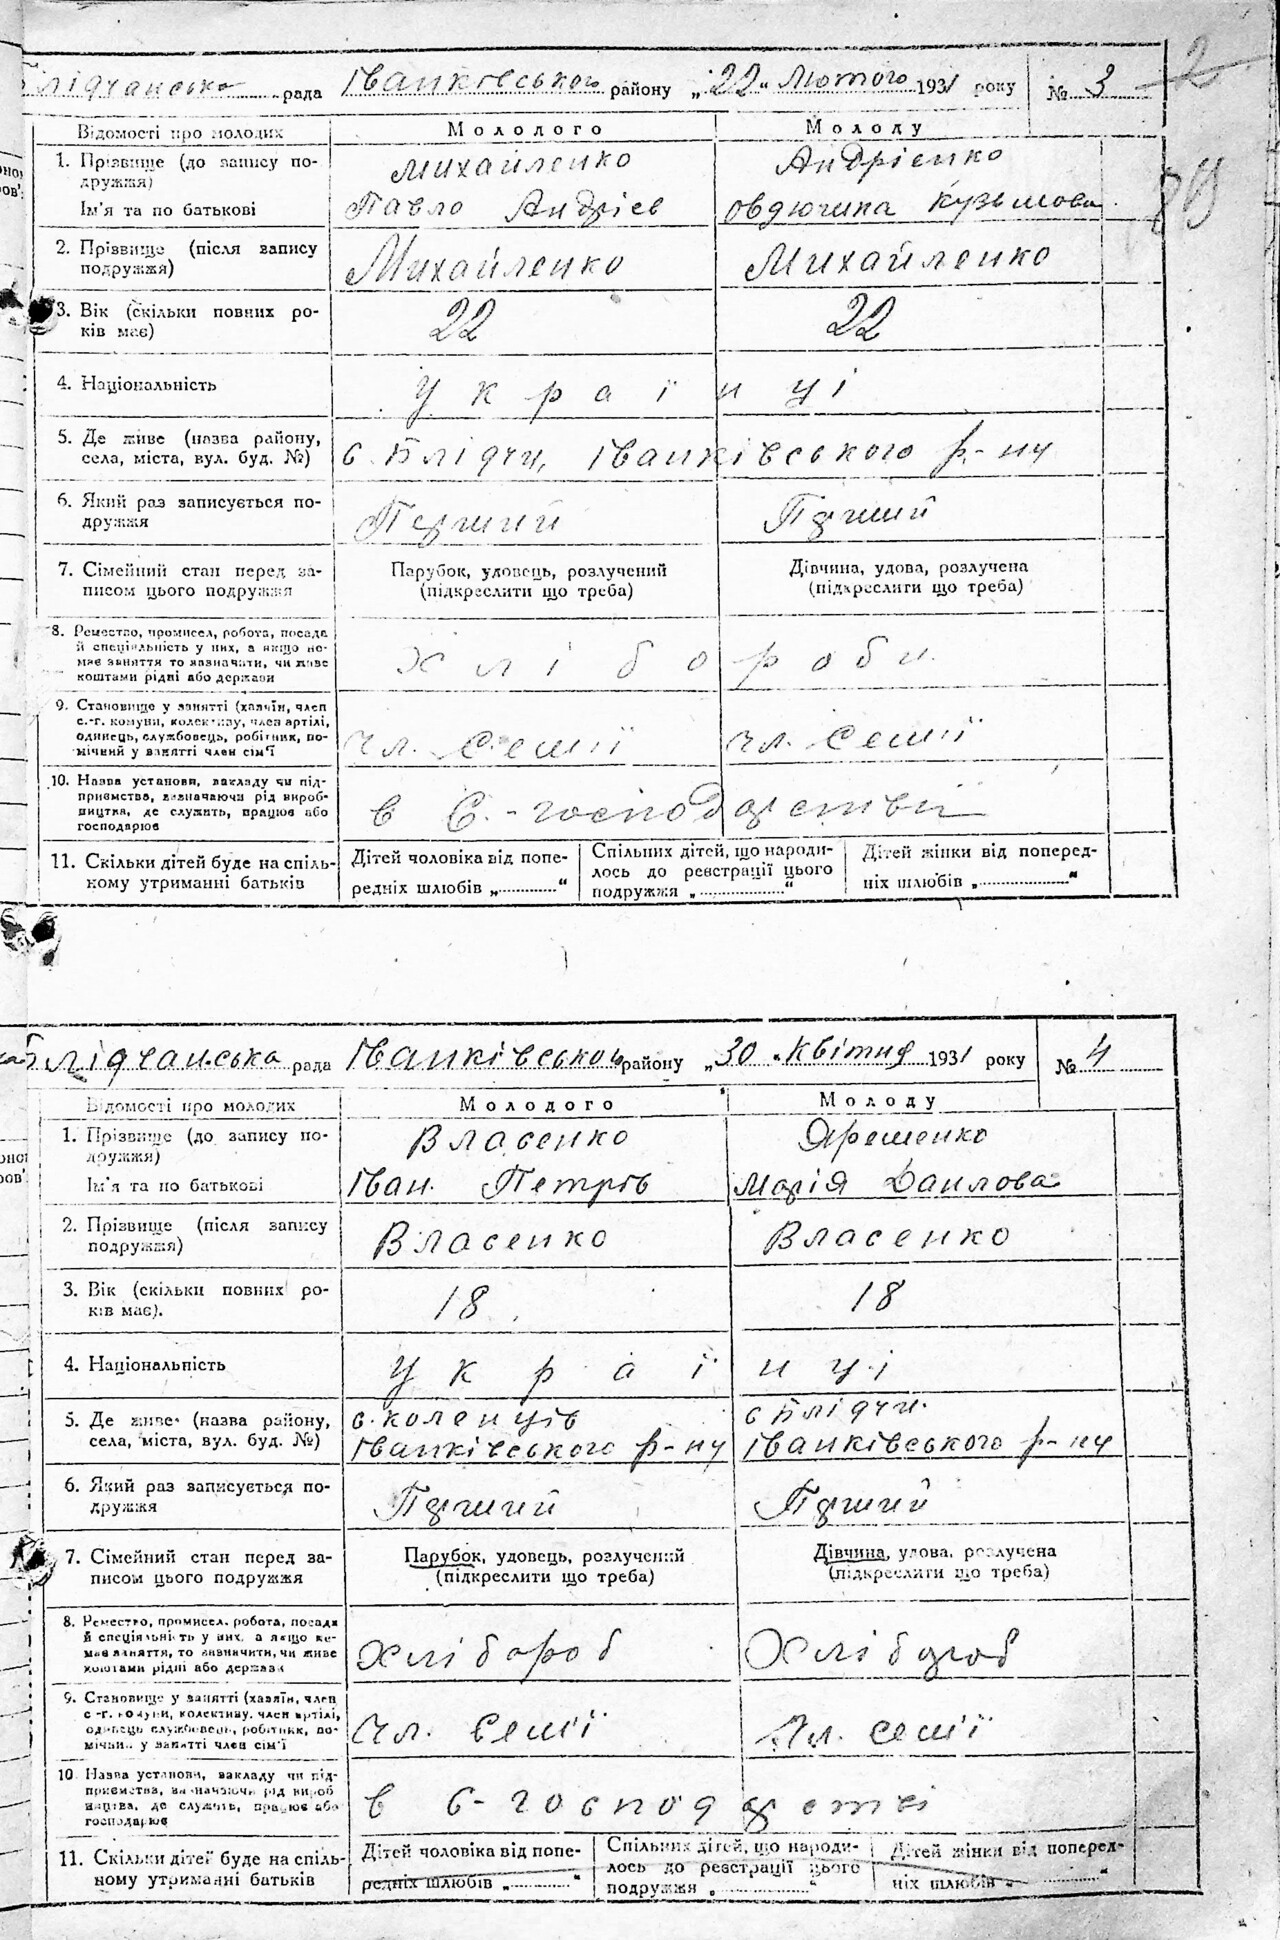 Блідчанська рада Іванківського району „22“ Лютого 1931 року № 3
2
89
Відомості про молодих Молодого Молоду
1. Прізвище (до запису по-
дружжя)
Михайленко Андрієнко
Ім'я та по батькові Павло Андрієв Овдючина Кузьмова
2. Прізвище (після запису
подружжя)
Михайленко Михайленко
3. Вік (скільки повних ро-
ків має)
22 22
4. Національність Українці
5. Де живе (назва району,
села, міста, вул. буд. №)
с. Блідчи, Іванківського р-ну
6. Який раз записується по-
дружжя
Перший Перший
7. Сімейний стан перед за-
писом цього подружжя
Парубок, удовець, розлучений
(підкреслити що треба)
Дівчина, удова, розлучена
(підкреслити що треба)
8. Ремество, промисел, робота, посада
й спеціяльність у них, а якщо не-
має заняття то зазначати, чи живе
коштами рідні або держави
Хлібороби.
9. Становище у занятті (хазяїн, член
с.-г. комуни, колективу, член артілі,
одинець, службовець, робітник, по-
мічний у занятті член сім'ї
чл. Семії чл. Семії
10. Назва установи, закладу чи під-
приємства, зазначаючи рід вироб-
ництва, де служить, працює або
господарює
в С.-господарстві
11. Скільки дітей буде на спіль-
ному утриманні батьків
Дітей чоловіка від попе-
редніх шлюбів „.............“
Спільних дітей, що народи-
лось до реєстрації цього
подружжя „.............“
Дітей жінки від поперед-
ніх шлюбів „.............“
Блідчанська рада Іванківського району „30“ Квітня 1931 року № 4
Відомості про молодих Молодого Молоду
1. Прізвище (до запису по-
дружжя)
Власенко Ярешенко
Ім'я та по батькові Іван Петрів Марія Данлова
2. Прізвище (після запису
подружжя)
Власенко Власенко
3. Вік (скільки повних ро-
ків має).
18 18
4. Національність Українці
5. Де живе (назва району,
села, міста, вул. буд. №)
с. Коленців
Іванківського р-ну
с Блідчи.
Іванківського р-ну
6. Який раз записується по-
дружжя
Перший Перший
7. Сімейний стан перед за-
писом цього подружжя
Парубок, удовець, розлучений
(підкреслити що треба)
Дівчина, удова, розлучена
(підкреслити що треба)
8. Ремество, промисел, робота, посада
й спеціяльність у них, а якщо не-
має заняття, то зазначити, чи живе
коштами рідні або держави
Хлібороб Хлібороб
9. Становище у занятті (хазяїн, член
с-г. комуни, колективу, член артілі,
одинець службовець, робітник, по-
мічний у занятті член сім'ї
чл. Семії чл. семії
10. Назва установи, закладу чи під-
приємства, зазначаючи рід вироб
ництва, де служить, працює або
господарює
в с-господарстві
11. Скільки дітей буде на спіль-
ному утриманні батьків
Дітей чоловіка від попе-
редніх шлюбів „.............“
Спільних дітей, що народи-
лось до реєстрації цього
подружжя „.............“
Дітей жінки від поперед-
ніх шлюбів „.............“